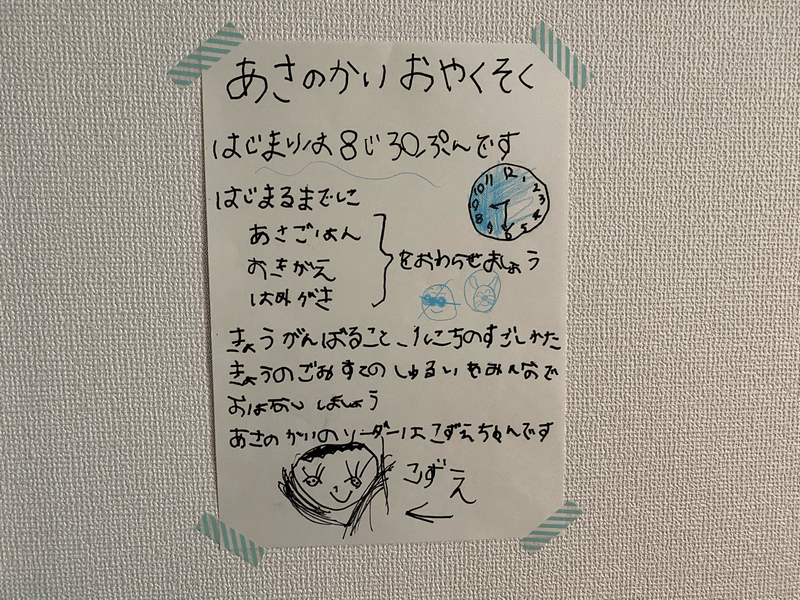 あさのかい おやくそく
はじまりは 8じ 30ぷんです
はじまるまでに
あさごはん
おきがえ
はみがき
をおわらせましょう
12 1 2 3 4 5 6 7 8 9 10 11
きょう がんばること、1にちのすごしかた
きょうのごみすての しゅるい をみんなで
おはなし しましょう
あさの かいのリーダーは こずえちゃんです
こずえ